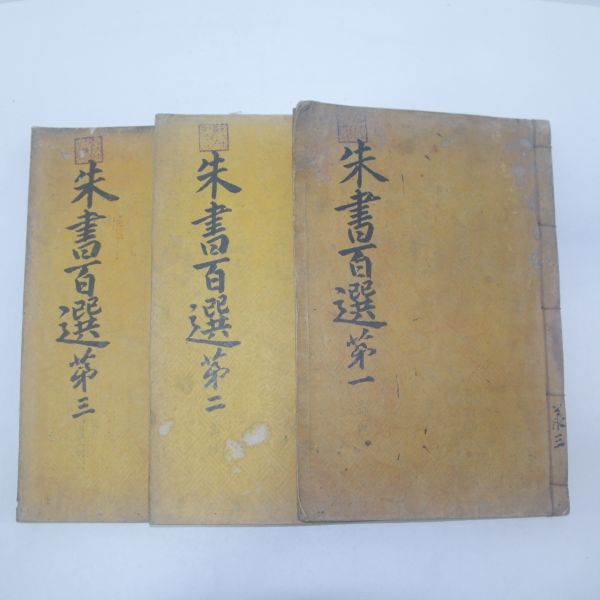 朱書百選 第一
朱書百選 第二
朱書百選 第三